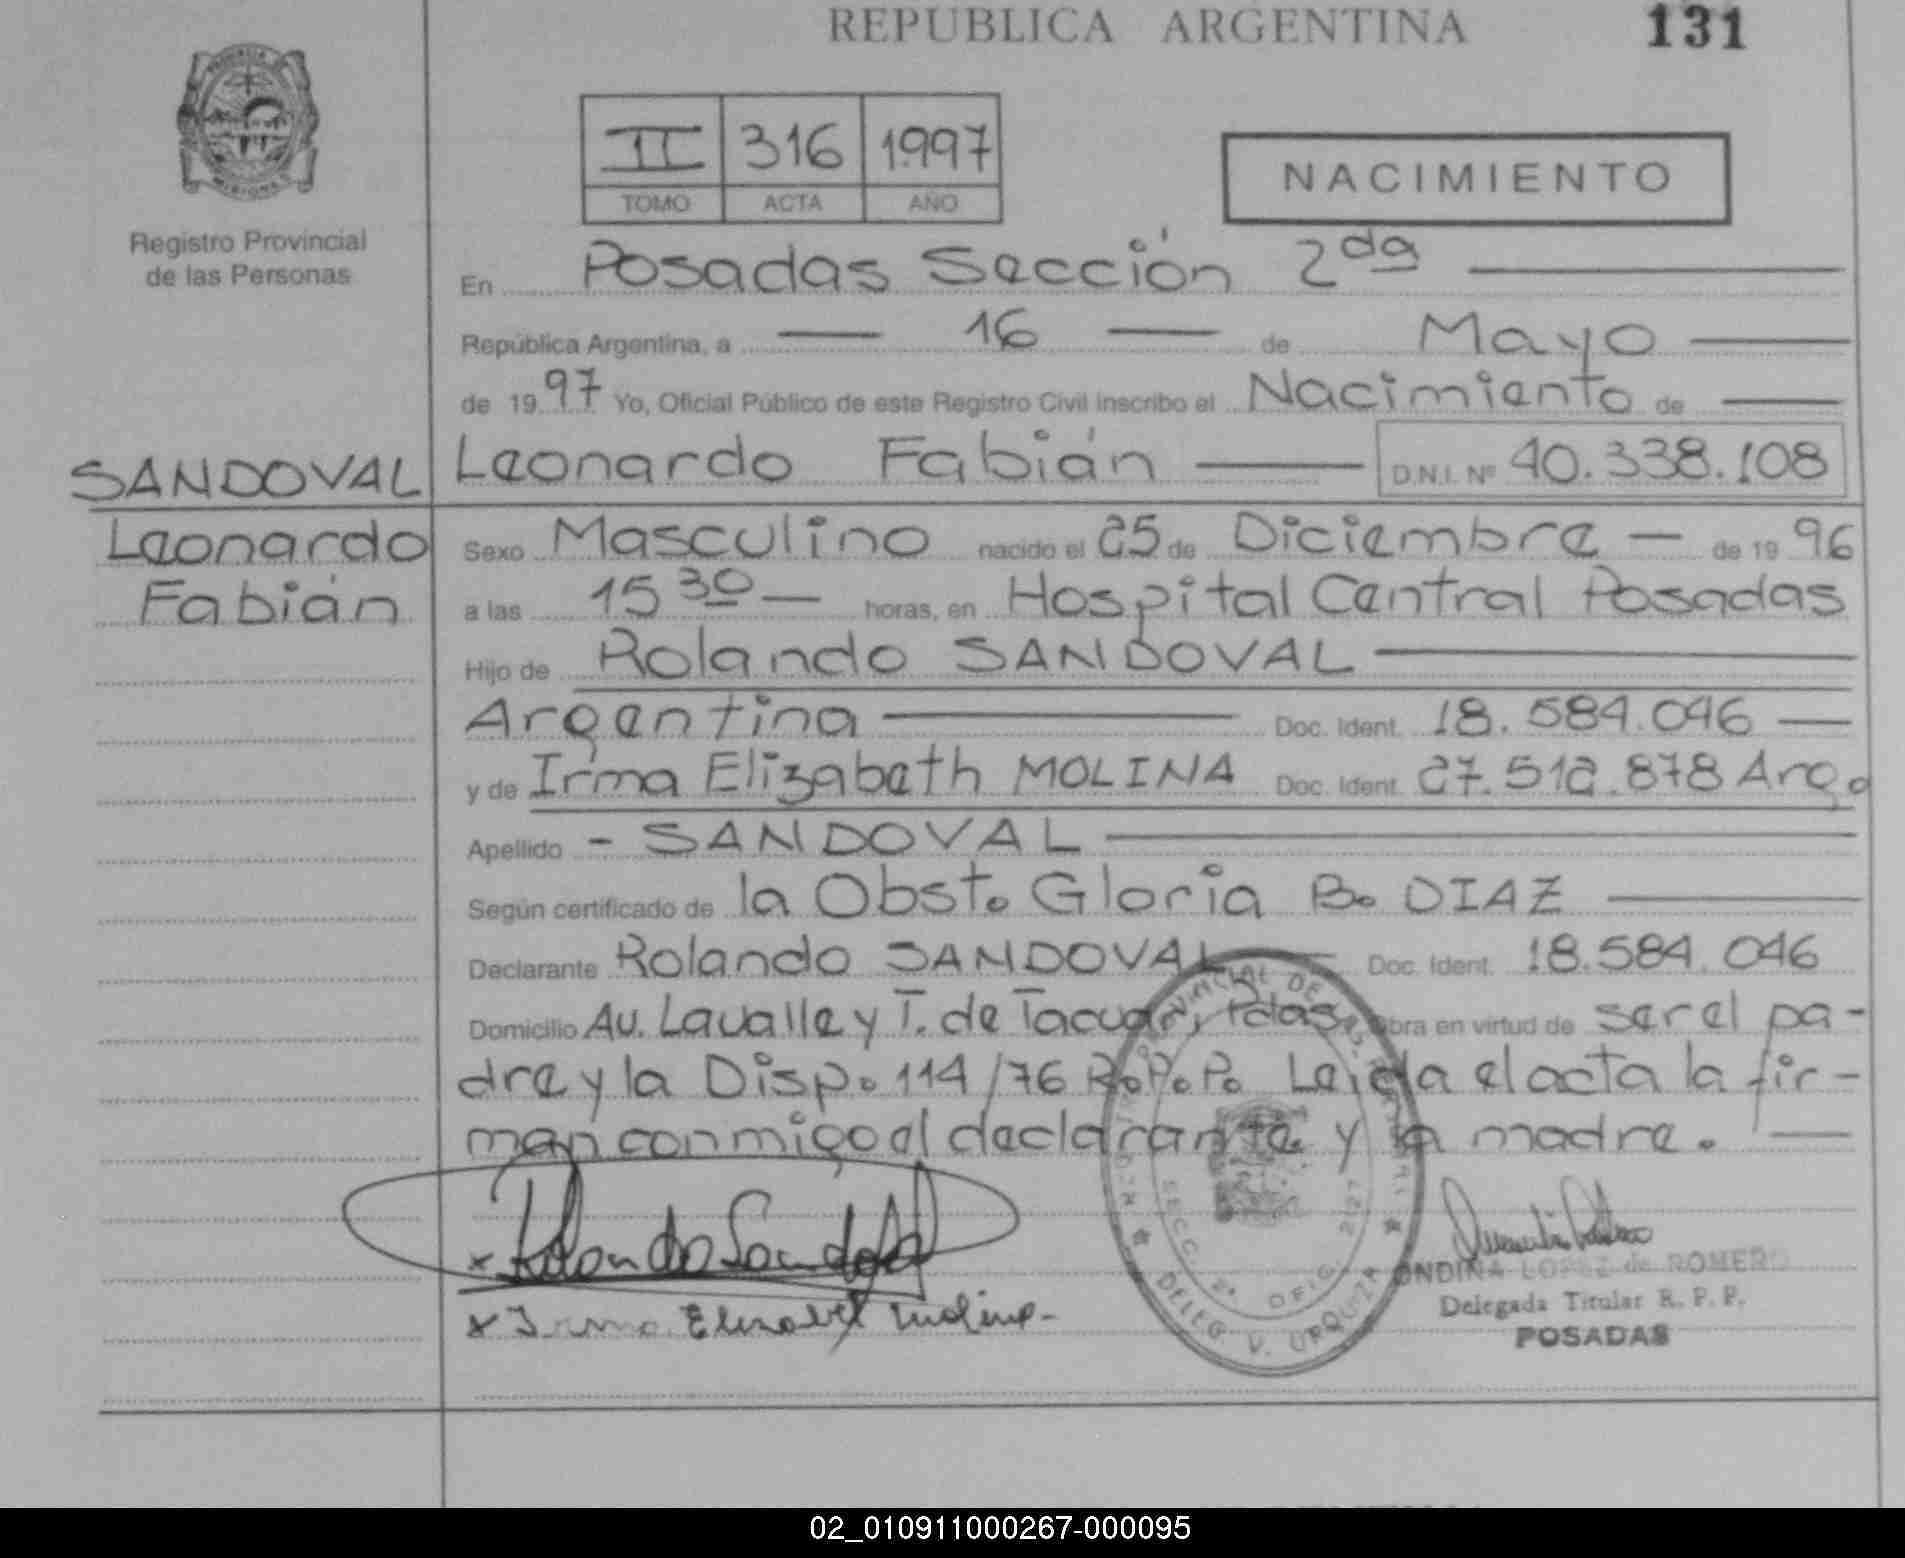 REPUBLICA ARGENTINA 131
II 316 1997
TOMO ACTA AÑO
NACIMIENTO
Registro Provincial
de las Personas
En Posadas Sección 2da
República Argentina, a 16 de Mayo
de 1997 Yo, Oficial Público de este Registro Civil inscribo el Nacimiento de
SANDOVAL
Leonardo
Fabián
Leonardo Fabián D.N.I. Nº 40.338.108
Sexo Masculino nacido el 25 de Diciembre de 1996
a las 15 30 horas, en Hospital Central Posadas
Hijo de Rolando SANDOVAL
Argentina Doc. Ident. 18.584.046
y de Irma Elizabeth MOLINA Doc. Ident. 27.512.878 Arg.
Apellido - SANDOVAL
Según certificado de la Obst. Gloria B. DIAZ
Declarante Rolando SANDOVAL Doc. Ident. 18.584.046
Domicilio Av. Lavalle y T. de Tacuarí, Pdas. Obra en virtud de ser el pa-
dre y la Disp. 114/76 R.P.P. Leída el acta la fir-
man conmigo el declarante y la madre.
x Rolando Sandoval
x Irma Elizabet Molina-
SECC. 2ª OFIC. 2127
DELEG. V. URQUIZA
ONDINA LOPEZ de ROMERO
Delegada Titular R. P. P.
POSADAS
02_010911000267-000095